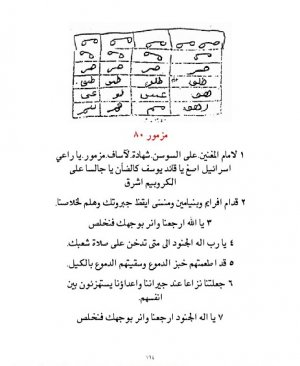 مزمور ٨٠
١ لامام المغنين.على السوسن.شهادة.لآساف.مزمور.يا راعي
اسرائيل اصغ يا قائد يوسف كالضأن يا جالسا على
الكروبيم اشرق
٢ قدام افرايم وبنيامين ومنسى ايقظ جبروتك وهلم لخلاصنا.
٣ يا الله ارجعنا وانر بوجهك فنخلص
٤ يا رب اله الجنود الى متى تدخن على صلاة شعبك.
٥ قد اطعمتهم خبز الدموع وسقيتهم الدموع بالكيل.
٦ جعلتنا نزاعا عند جيراننا واعداؤنا يستهزئون بين
انفسهم.
٧ يا اله الجنود ارجعنا وانر بوجهك فنخلص
١٦٤